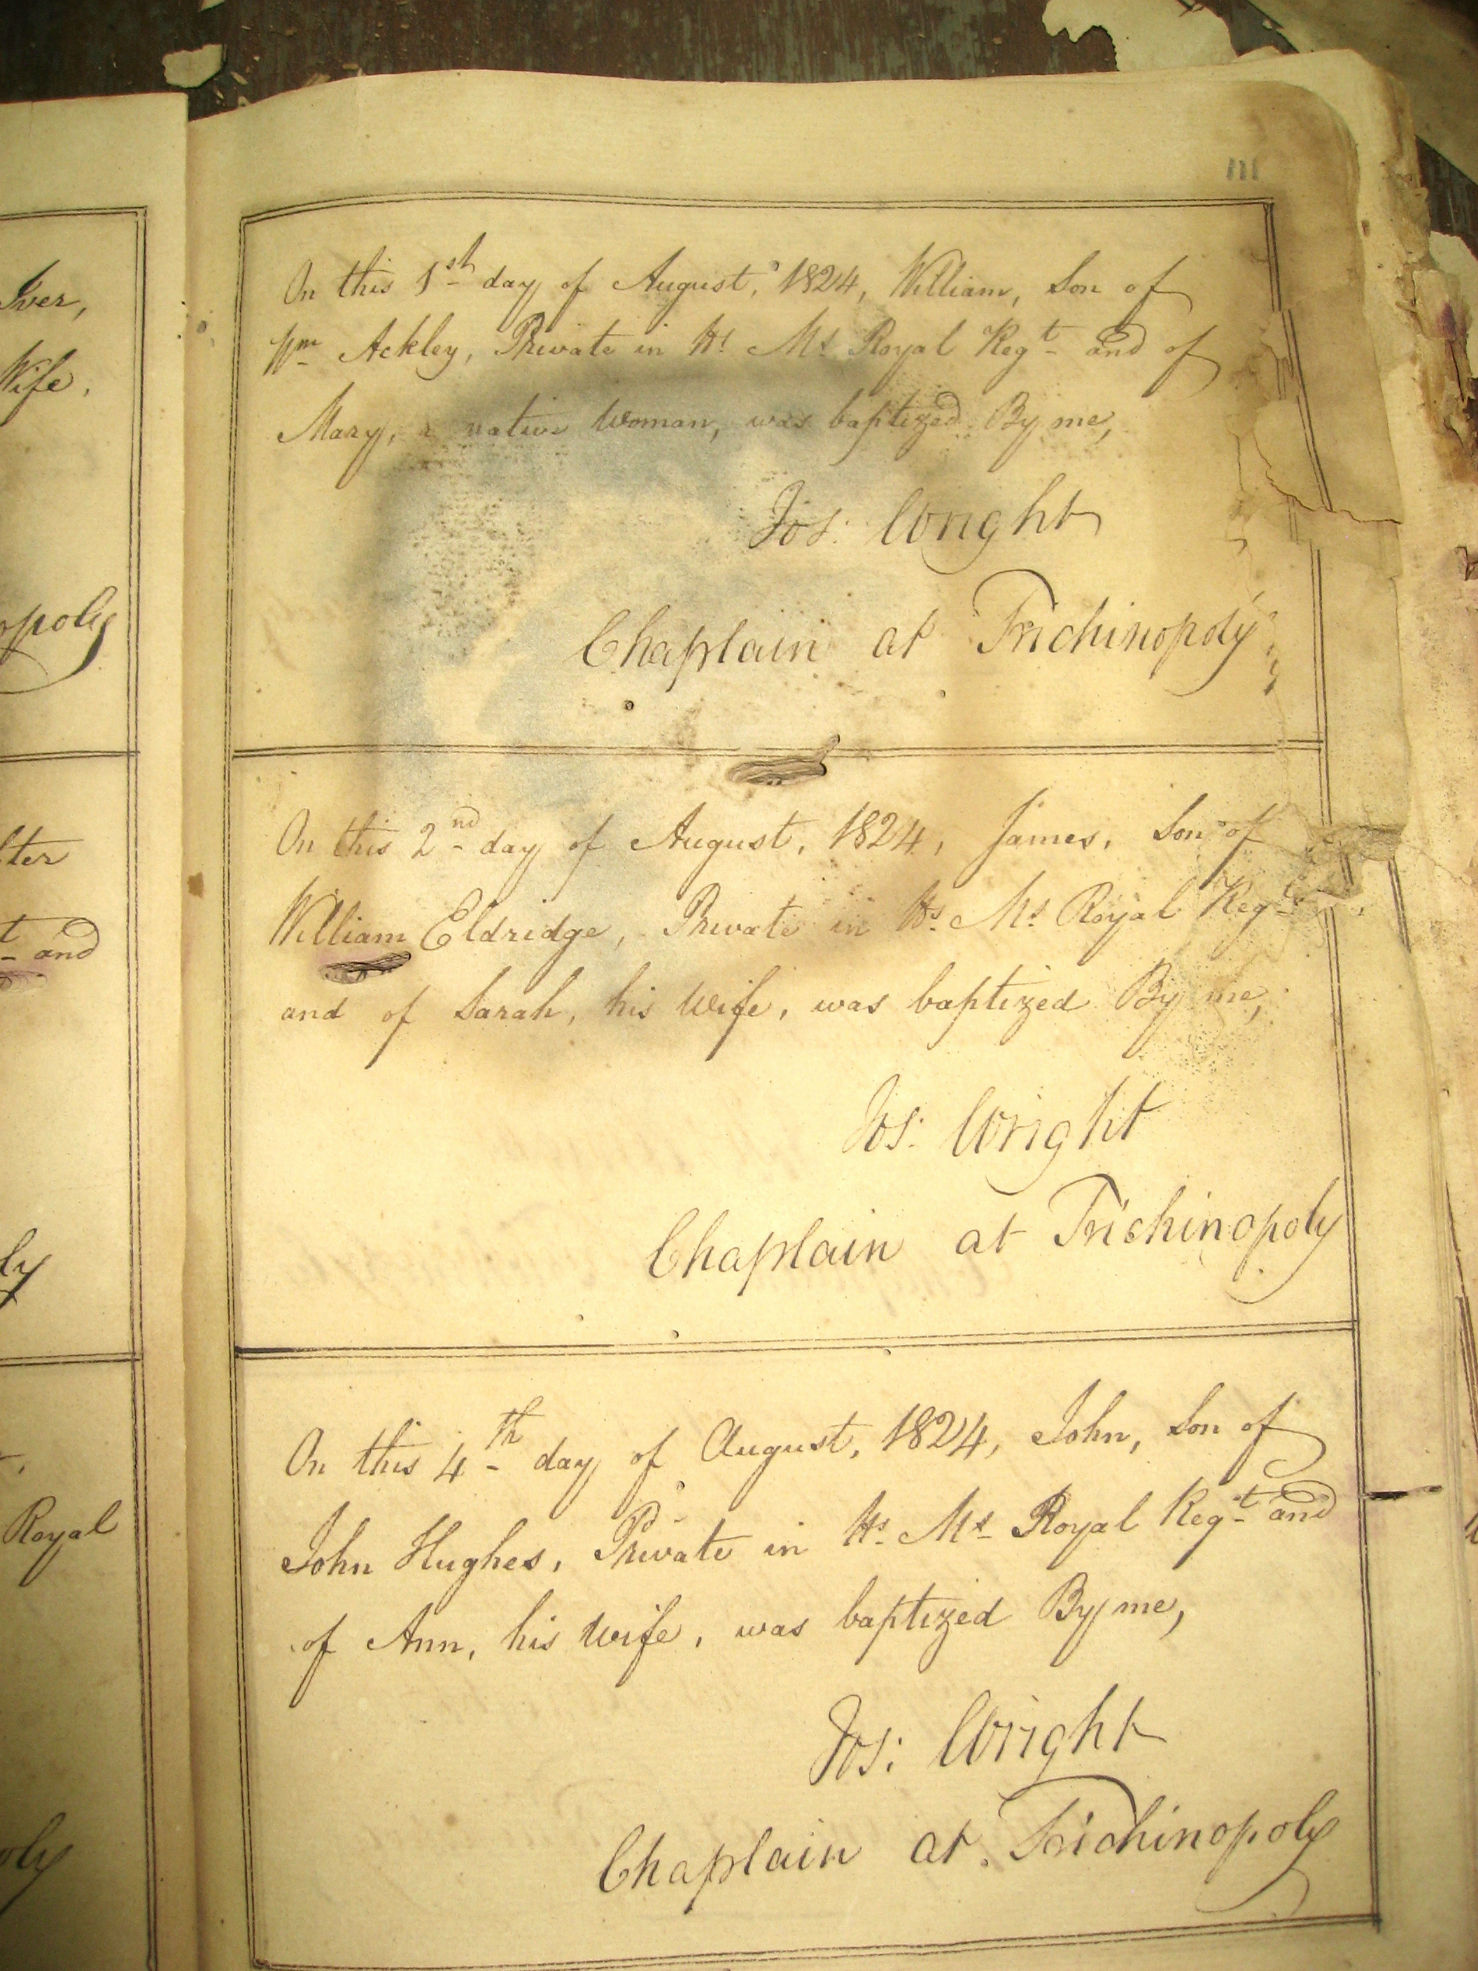 Iver,
Wife.
opoly
lter
t and
ly
Royal
oly
111
On this 1st day of August, 1824, William, Son of
Wm Ackley, Private in H's M's Royal Regt and of
Mary, a native Woman, was baptized By me,
Jos: Wright
Chaplain at Trichinopoly
On this 2nd day of August, 1824, James, Son of
William Eldridge, Private in Hs. Ms Royal Regt
and of Sarah, his Wife, was baptized By me,
Jos: Wright
Chaplain at Trichinopoly
On this 4th day of August, 1824, John, Son of
John Hughes, Private in Hs. Ms Royal Regt and
of Ann, his Wife, was baptized By me,
Jos: Wright
Chaplain at Trichinopoly